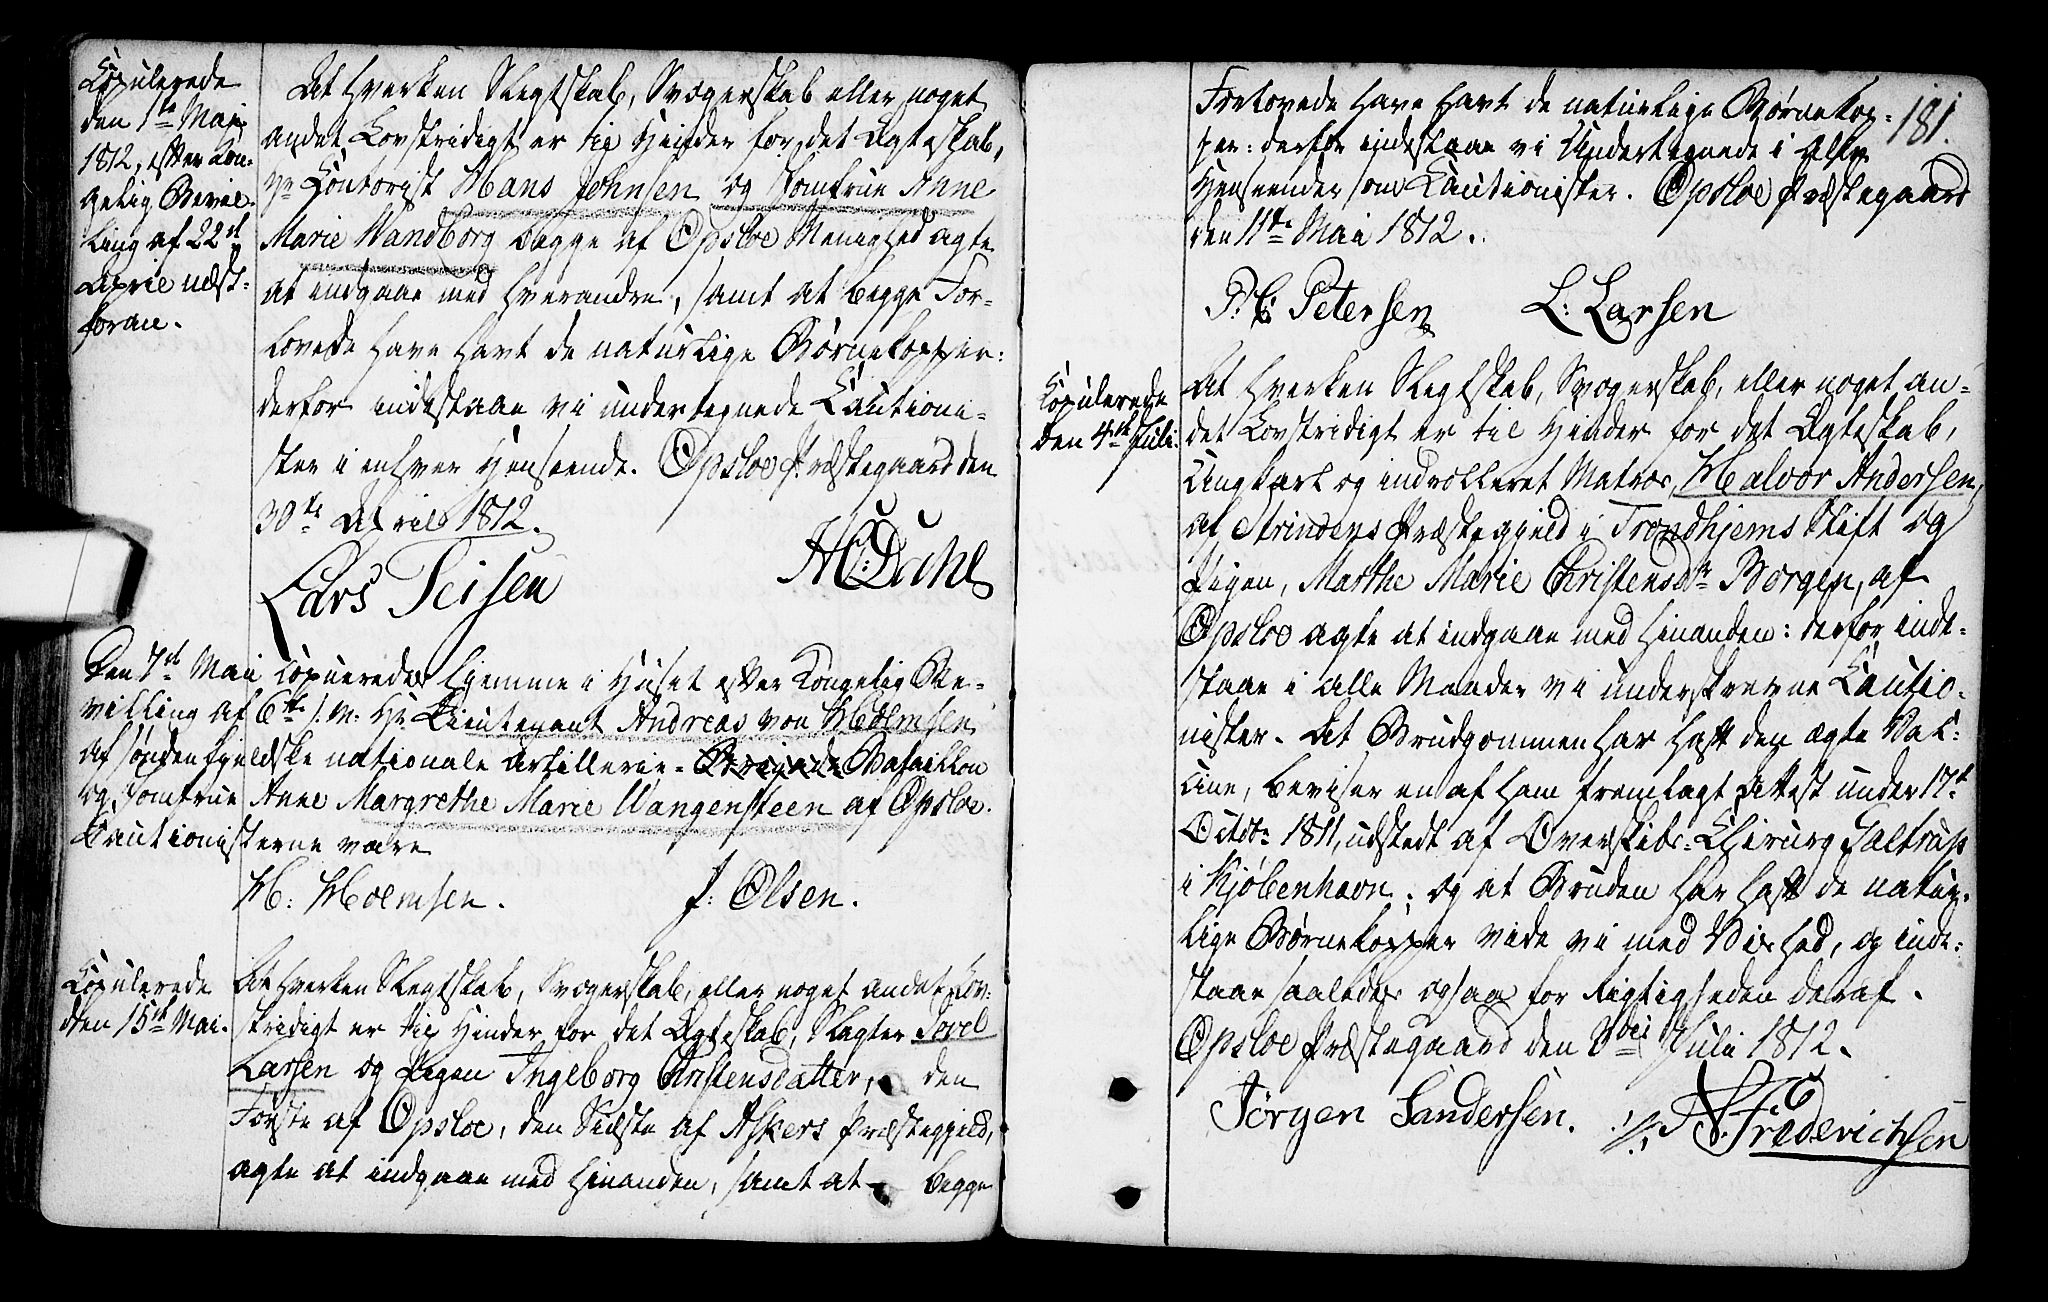 Copulerede
den 1ste Mai
1812, efter Kon-
gelig Bevil-
ling af 22d
April næst-
foran.
At hverken Slegtskab, Svogerskab eller noget
andet Lovstridigt er til Hinder for det Ægteskab,
Hr. Contorist Hans Johnsen og Jomfrue Anne
Marie Wandborg begge af Opsloe Menighed agte
at indgaae med hverandre, samt at begge For-
lovede have havt de naturlige Børnekopper:
derfor indestaae vi undertegnede Cautioni-
ster i enhver Henseende. Opsloe Præstegaard den
30te April 1812.
Lars Jeisen HC: Dahl
Den 7de Mai copulerede hjemme i Huset efter Kongelig Be-
villing af 6te s. M. Hr. Lieutenant Andreas von Holmsen
af søndenfjeldske nationale Artillerie- Brigade Bataillon
og Jomfrue Anne Margrethe Marie Wangensteen af Opsloe.
Cautionisterne vare
H: Holmsen. J: Olsen.
Copulerede
den 15de Mai.
At hverken Slegtskab, Svogerskab, eller noget andet Lov-
stridigt er til Hinder for det Ægteskab, Slagter Povel
Larsen og Pigen Ingeborg Christensdatter, den
Første af Opsloe, den Sidste af Askers Præstegjeld,
agte at indgaae med hinanden, samt at begge
181.
Forlovede have havt de naturlige Børnekop-
per: derfor indestaae vi Undertegnede i alle
Henseender som Cautionister. Opsloe Præstegaard
den 11te Mai 1812.
P. C. Petersen L: Larsen
Copulerede
den 4de Juli.
At hverken Slegtskab, Svogerskab, eller noget an-
det Lovstridigt er til Hinder for det Ægteskab,
Ungkarl og indrolleret Matros, Halvor Andersen,
af Strindens Præstegjeld i Trondhjems Stift og
Pigen, Marthe Marie Christensdtr Borgen, af
Opsloe agte at indgaae med hinanden: derfor inde-
staae i alle Maader vi underskrevne Cautio-
nister. At Brudgommen har haft den ægte Vac-
cine, beviser en af ham fremlagt Attest under 17de
Octobr 1811, udstedt af Overskibs-Chirurg Galtrup
i Kjøbenhavn; og at Bruden har haft de natur-
lige Børnekopper vide vi med Vished, og inde-
staae saaledes ogsaa for Rigtigheden deraf.
Opsloe Præstegaard den 3die Juli 1812.
Jörgen Sandersen. Frederichsen